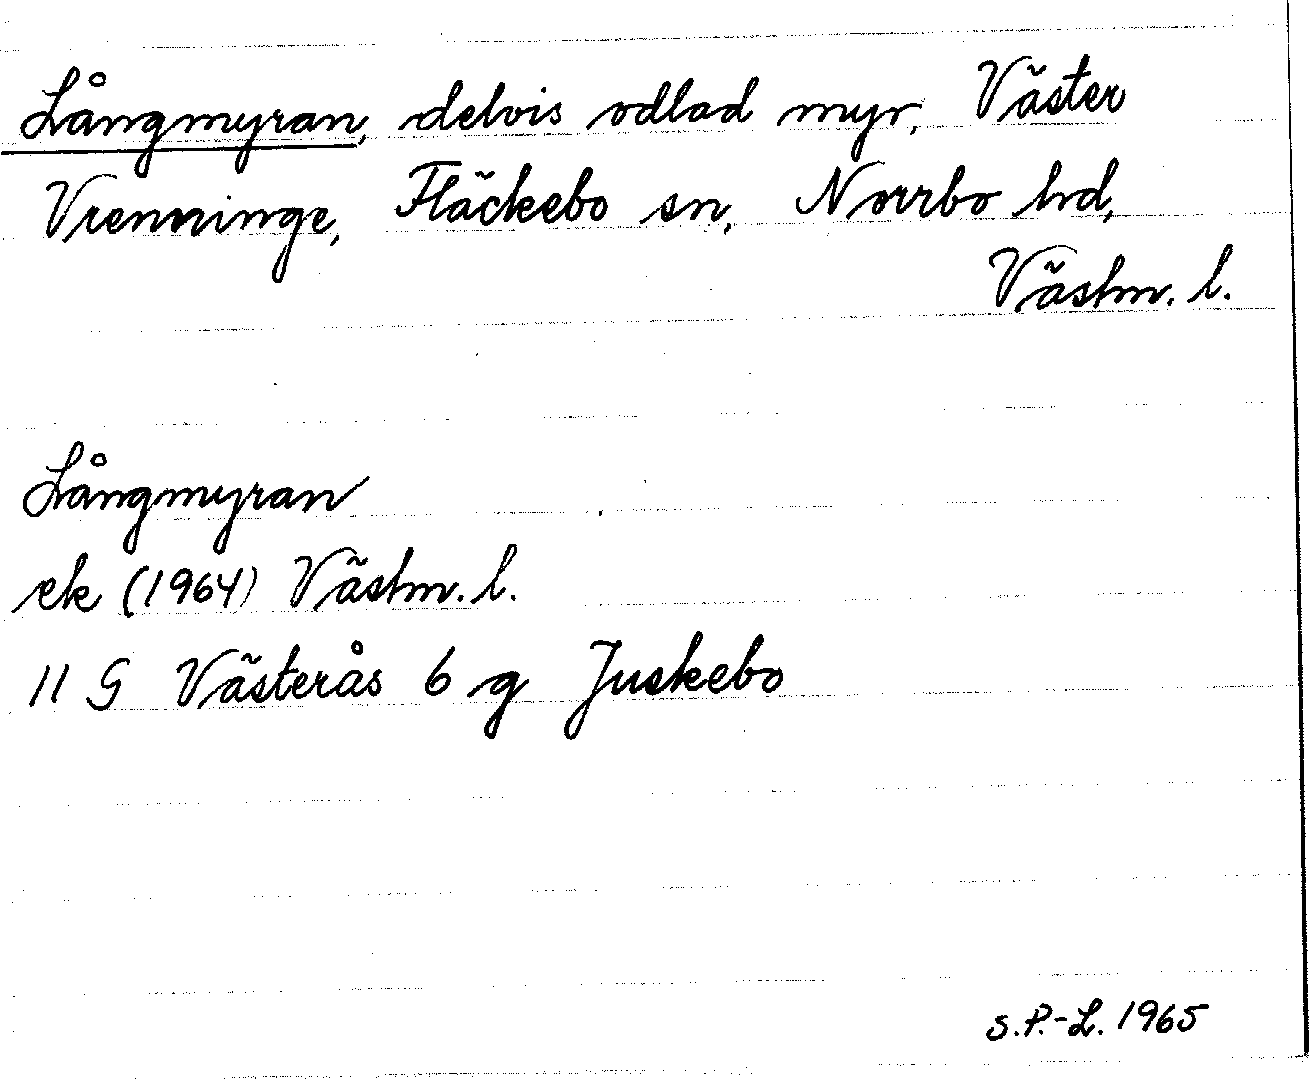 Långmyran, delvis odlad myr, Väster
Vrenninge, Fläckebo sn, Norrbo hd,
Västm. l.
Långmyran
ek (1964) Västm. l.
11 G Västerås 6 g Juskebo
S.P.-L. 1965